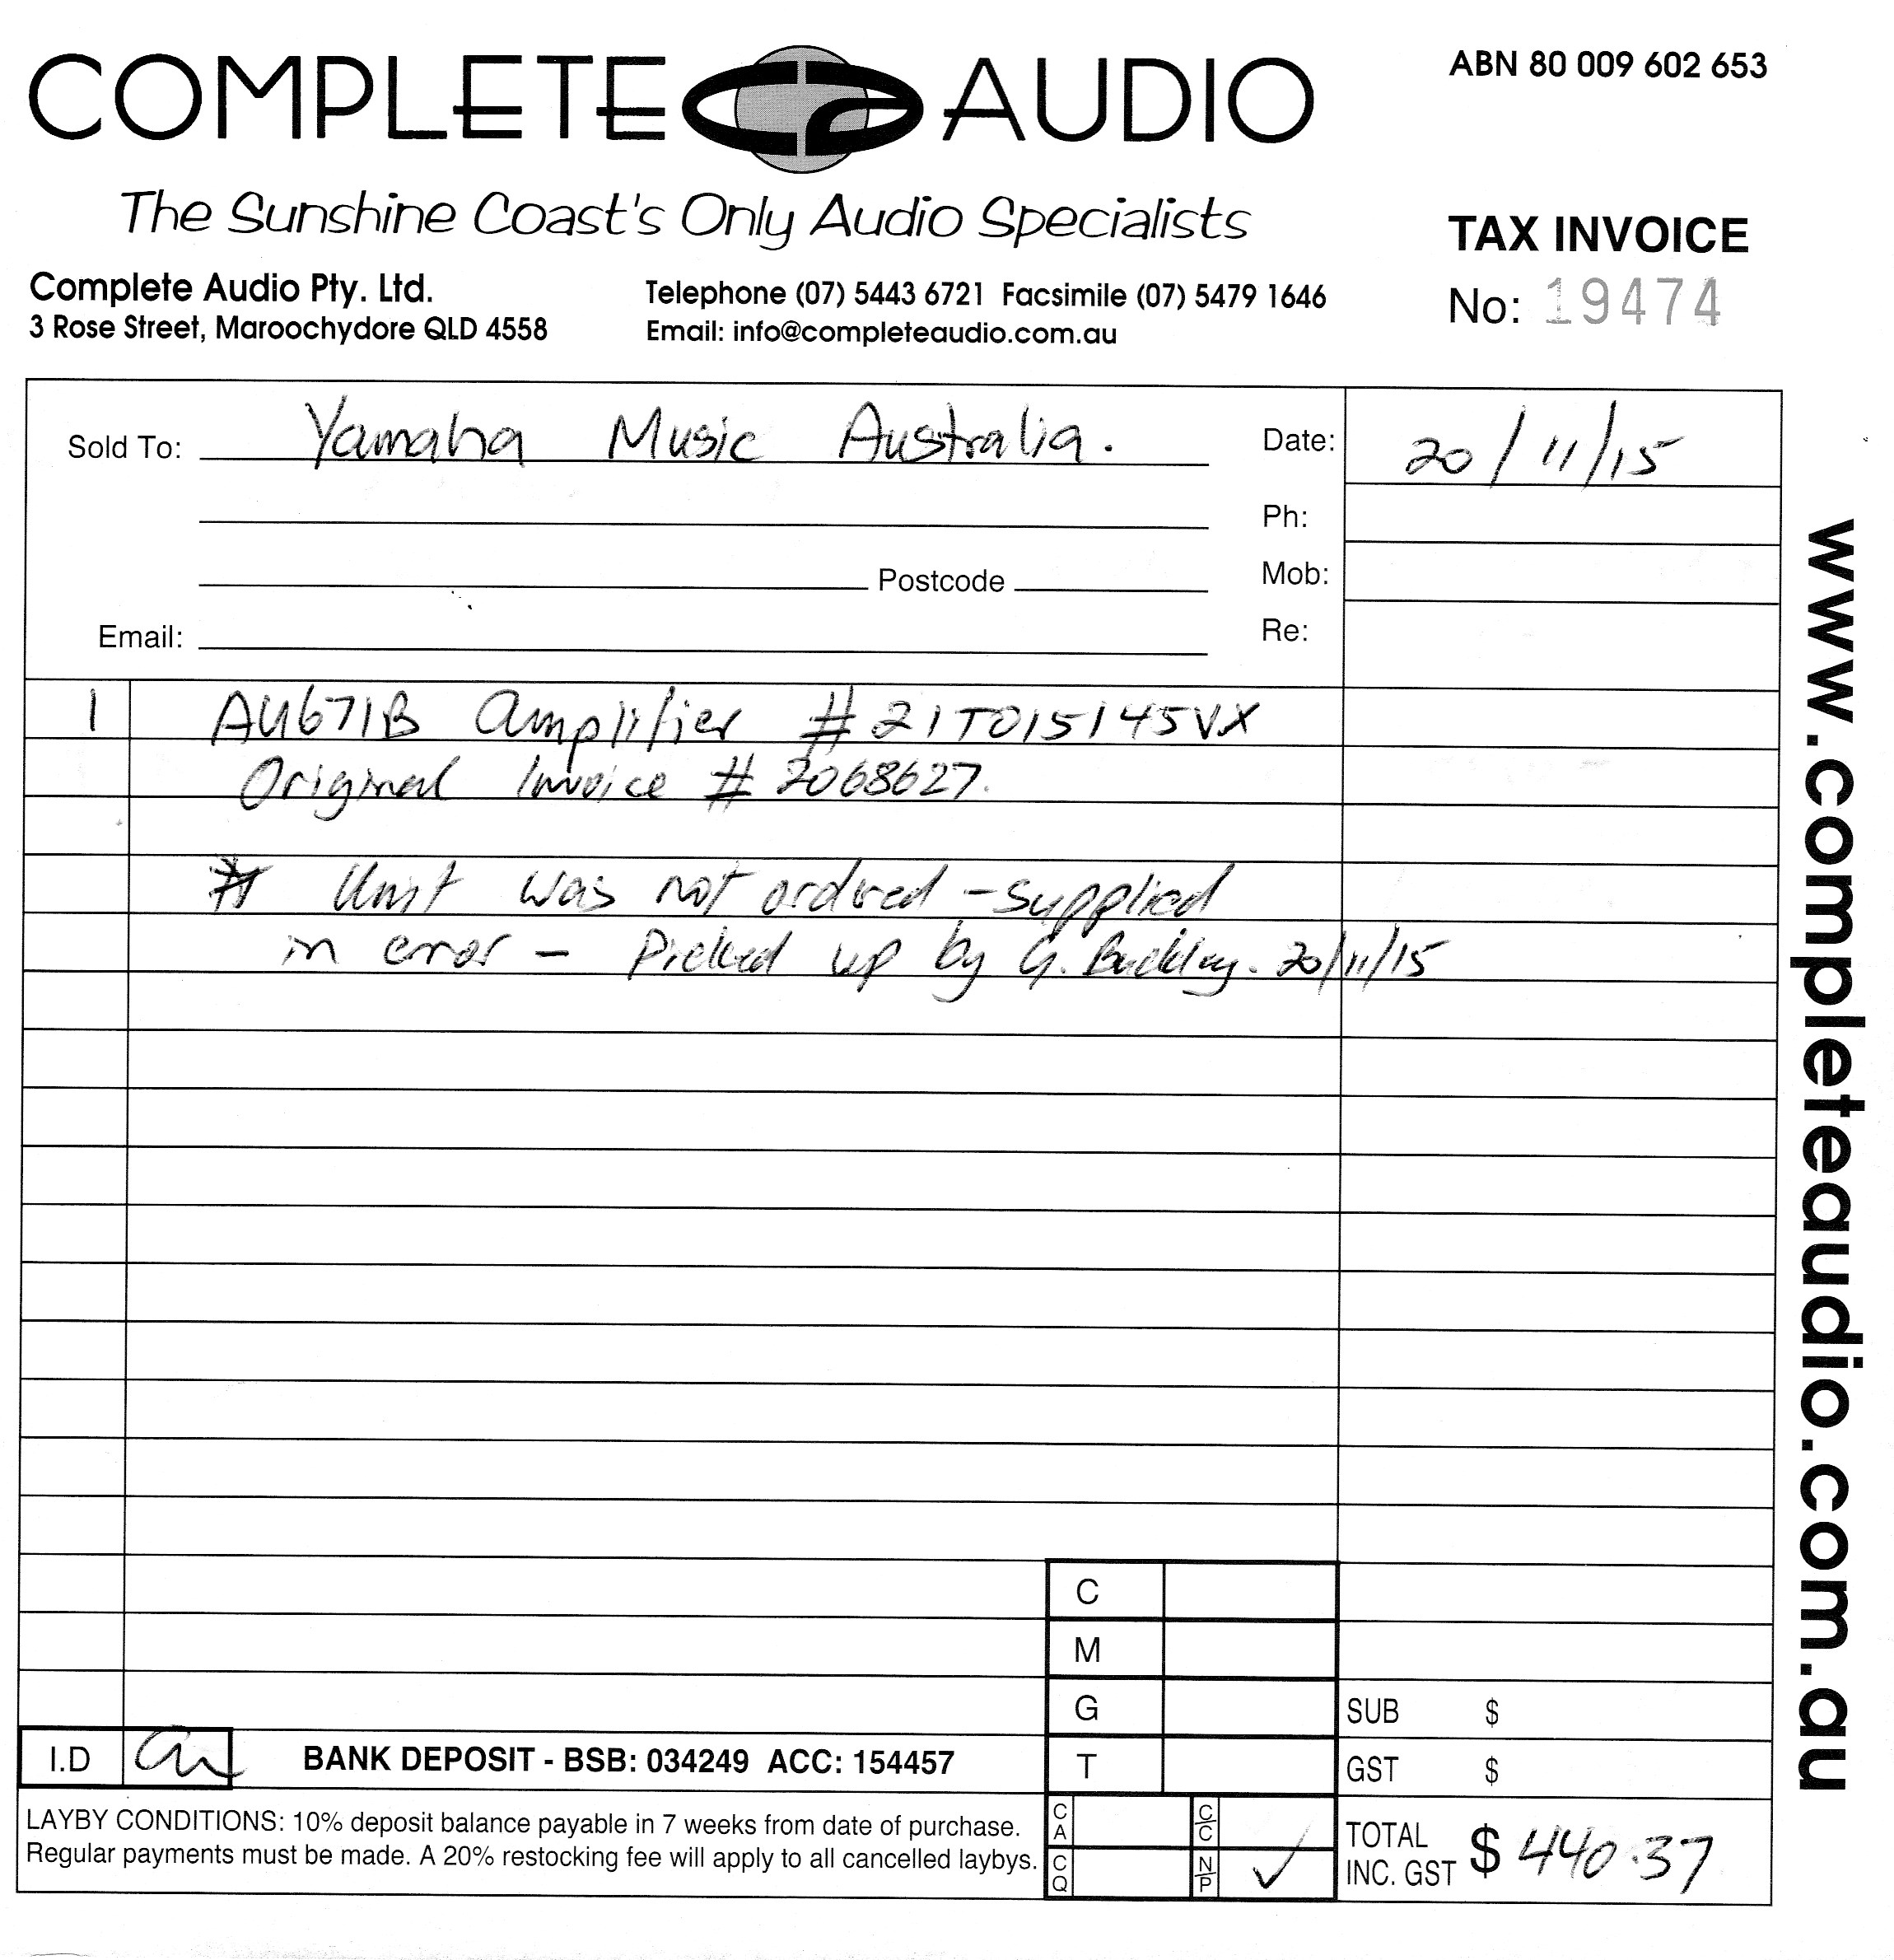 COMPLETE AUDIO
ABN 80 009 602 653
The Sunshine Coast's Only Audio Specialists
TAX INVOICE
No: 19474
Complete Audio Pty. Ltd.
3 Rose Street, Maroochydore QLD 4558
Telephone (07) 5443 6721 Facsimile (07) 5479 1646
Email: info@completeaudio.com.au
Sold To: Yamaha Music Australia.
Date: 20/11/15
Ph:
Postcode
Mob:
Email:
Re:
1 AU671B Amplifier # 21T015145VX
Original Invoice # 2068627.
* Unit was not ordered - supplied
in error - Picked up by G. Buckley. 20/11/15
www.completeaudio.com.au
C
M
G
SUB $
I.D
BANK DEPOSIT - BSB: 034249 ACC: 154457
T
GST $
LAYBY CONDITIONS: 10% deposit balance payable in 7 weeks from date of purchase.
Regular payments must be made. A 20% restocking fee will apply to all cancelled laybys.
CA
C/C
CQ
N/P ✓
TOTAL
INC. GST $ 440.37